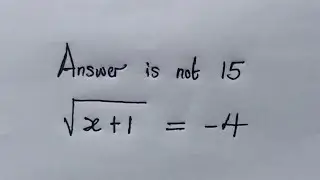 Answer is not 15
√x+1 = -4